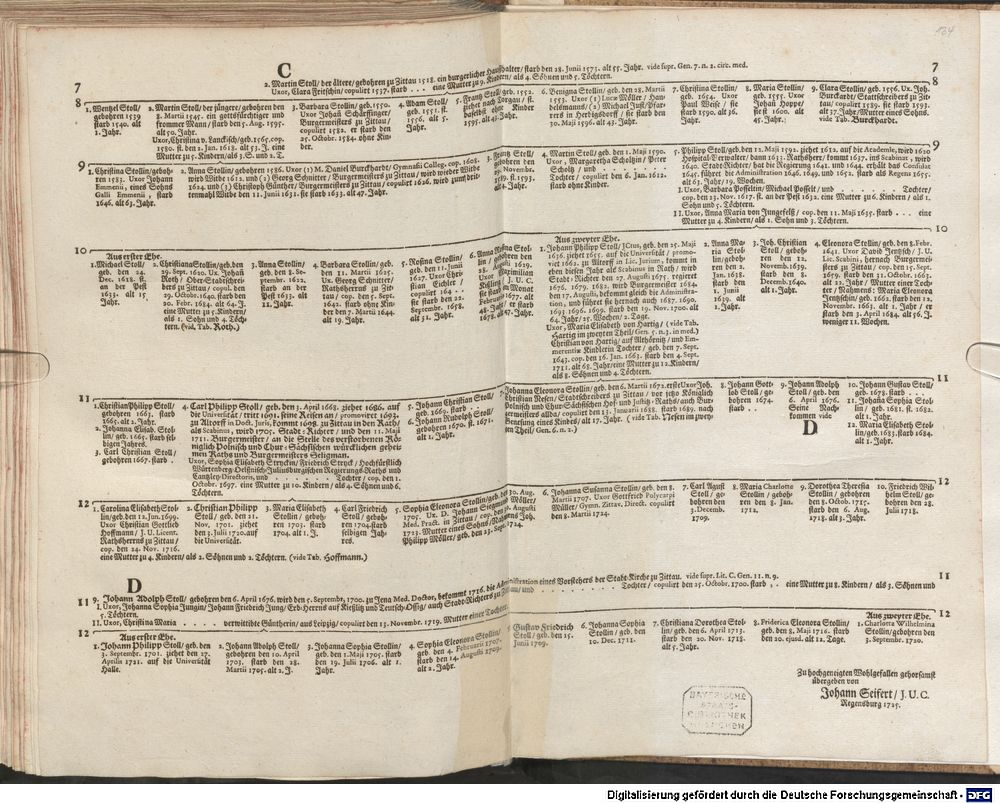 184
C
7 2. Martin Stoll / der ältere / gebohren zu Zittau 1518. ein burgerlicher Haußhalter / starb den 28. Junii 1573. alt 55. Jahr. vide supr. Gen. 7. n. 2. circ. med. 7
Uxor, Clara Fritschin / copulirt 1537. starb . . . eine Mutter zu 9. Kindern / als 4. Söhnen und 5. Töchtern.
8 8
1. Wentzel Stoll /
gebohren 1539
starb 1540. alt
1. Jahr.
2. Martin Stoll der jüngere / gebohren den
8. Martii 1545. ein gottsfürchtiger und
frommer Mann / starb den 5. Aug. 1595.
alt 50. Jahr.
Uxor, Christina v. Lanckisch / geb. 1565. cop.
1580. st. den 2. Jan. 1618. alt 53. J. eine
Mutter zu 5. Kindern / als 3. S. und 2. T.
3. Barbara Stollin / geb. 1550.
Uxor Johañ Schärffinger /
Burgermeisters zu Zittau /
copulirt 1582. er starb den
25. Octobr. 1584. ohne Kin-
der.
4. Adam Stoll /
geb. 1551. st.
1556. alt 5.
Jahr.
5. Frantz Stoll / geb. 1552.
ziehet nach Torgau / st.
daselbst ohne Kinder
1595. alt 43. Jahr.
6. Benigna Stollin / geb. den 28. Martii
1553. Uxor (1) Lucæ Möller / Han-
delsmanns / (2) Michael Just / Pfar-
rers in Herbigsdorff / sie starb den
30. Maji 1596. alt 43. Jahr.
7. Christina Stollin /
geb. 1554. Uxor
Paul Weise / sie
starb 1590. alt 36.
Jahr.
8. Maria Stollin /
geb. 1555. Uxor
Johañ Hoppe /
sie st. 1600. alt
45. Jahr.
9. Clara Stollin / geb. 1556. Ux. Joh.
Burckarts / Stattschreibers zu Zit-
tau / copulirt 1589. sie starb 1593.
alt 37. Jahr / Mutter eines Sohns.
vide Tab. Burckardts.
9 9
1. Christina Stollin / geboh-
ren 1583. Uxor Johann
Emmenii, eines Sohns
Galli Emmenii, starb
1646. alt 63. Jahr.
2. Anna Stollin / gebohren 1586. Uxor (1) M. Daniel Burckhards / Gymnasii Colleg. cop. 1608.
wird Wittbe 1612. und (2) Georg Schnitter / Burgermeisters zu Zittau / wird wieder Wittbe
1624. und (3) Christoph Günther / Burgermeisters zu Zittau / copulirt 1626. wird zum drit-
tenmahl Wittbe den 11. Junii 1631. sie starb 1633. alt 47. Jahr.
3. Frantz Stoll /
gebohren den
29. Novembr.
1589. st. 1593.
alt 4. Jahr.
4. Martin Stoll / geb. den 1. Maji 1590.
Uxor, Margaretha Scholtzin / Peter
Scholtz / und . . . . . . . .
Tochter / copulirt den 6. Jan. 1612.
starb ohne Kinder.
5. Philipp Stoll / geb. den 12. Maji 1592. ziehet 1612. auf die Academie, wird 1630
Hospital-Verwalter / dann 1633. Rathsherr / kommt 1637. ins Scabinat, wird
1640. Stadt-Richter / bey der Regierung 1643. und 1644. erhält das Consulat
1645. führet die Administration 1646. 1649. und 1652. starb als Regens 1655.
alt 63. Jahr / 19. Wochen.
I. Uxor, Barbara Posseltin / Michael Posselt / und . . . . . . . . Tochter /
cop. den 23. Nov. 1617. st. an der Pest 1632. eine Mutter zu 6. Kindern / als 1.
Sohn und 5. Töchtern.
II. Uxor, Anna Maria von Jungefelß / cop. den 11. Maji 1635. starb . . . . eine
Mutter zu 4. Kindern / als 1. Sohn und 3. Töchtern.
10 10
Aus erster Ehe.
1. Michael Stoll /
geb. den 24.
Dec. 1618. st.
an der Pest
1633. alt 15
Jahr.
2. Christiana Stollin / geb. den
29. Sept. 1620. Ux. Johañ
Roth / Ober-Stadtschrei-
bers zu Zittau / copul. den
29. Octobr. 1640. starb den
20. Febr. 1664. alt 44. Jahr
eine Mutter zu 5. Kindern /
als 1. Sohn und 4. Töch-
tern. (vid. Tab. Roth.)
3. Anna Stollin /
geb. den 8. Se-
ptembr. 1622.
starb an der
Pest 1633. alt
11. Jahr.
4. Barbara Stollin / geb.
den 31. Martii 1625.
Ux. Georg Schnitter /
Rathsherrns zu Zit-
tau / cop. den 5. Sept.
1642. starb ohne Kin-
der den 7. Martii 1644.
alt 19. Jahr.
5. Rosina Stollin /
geb. den 11. Junii
1627. Uxor Chri-
stian Eichler /
copulirt 164 . .
sie starb den 22.
Septembr. 1658.
alt 31. Jahr.
Aus zweyter Ehe.
1. Johann Philipp Stoll / JCtus, geb. den 25. Maji
1636. ziehet 1655. auf die Universität / promo-
virt 1662. zu Altorff in Lic. Jurium, kommt in
eben diesen Jahr als Scabinus in Rath / wird
Stadt-Richter den 27. Augusti 1675. regiert
1676. 1679. 1682. wird Burgermeister 1684.
den 17. Augusti, bekommt gleich die Administra-
tion, und führet sie hernach auch 1687. 1690.
1693. 1696. 1699. starb den 19. Nov. 1700. alt
64. Jahr / 25. Wochen / 2. Tage.
Uxor, Maria Elisabeth von Hartig / (vide Tab.
Hartig im zweyten Theil / Gen. 5. n. 3. in med.)
Christian von Hartig / auf Althörnitz / und Em-
merentiæ Kindlerin Tochter / geb. den 7. Sept.
1643. cop. den 16. Jan. 1663. starb den 4. Sept.
1711. alt 68. Jahr / eine Mutter zu 12. Kindern /
als 8. Söhnen und 4. Töchtern.
2. Anna Ma-
ria Stol-
lin / geboh-
ren den 2.
Jan. 1638.
starb den
1. Junii
1639. alt
1. Jahr.
3. Joh. Christian
Stoll / geboh-
ren den 12.
Novemb. 1639.
starb den 8.
Decemb. 1640.
alt 1. Jahr.
4. Eleonora Stollin / geb. den 8. Febr.
1641. Uxor David Jentsch / J. U.
Lic. Scabini, hernach Burgermei-
sters zu Zittau / cop. den 23. Sept.
1659. starb den 31. Octobr. 1663.
alt 22. Jahr / Mutter einer Toch-
ter / Nahmens: Maria Eleonora
Jentzschin / geb. 1662. starb den 12.
Novembr. 1663. alt 1. Jahr / er
starb den 3. April 1684. alt 56. J.
weniger 11. Wochen.
11 11
1. Christian Philipp Stoll /
gebohren 1663. starb
1665. alt 2. Jahr.
2. Johanna Elisab. Stol-
lin / geb. 1665. starb sel-
bigen Jahrs.
3. Carl Christian Stoll /
gebohren 1667. starb .
4. Carl Philipp Stoll / geb. den 3. April 1668. ziehet 1686. auf
die Universität / tritt 1691. seine Reisen an / promoviret 1693.
zu Altorff in Doct. Juris, kommt 1698. zu Zittau in den Rath /
als Scabinus, wird 1705. Stadt-Richter / und den 11. Maji
1711. Burgermeister / an die Stelle des verstorbenen Kö-
niglich-Polnisch und Chur-Sächsischen würcklichen gehei-
men Raths und Burgermeisters Seligman.
Uxor, Sophia Elisabeth Stryckin / Friedrich Stryck / Hochfürstlich
Würtenberg-Oelsnisch-Juliusburgischen Regierungs-Raths und
Cantzley-Directoris, und . . . . . . . . Tochter / cop. den 1.
Octobr. 1697. eine Mutter zu 10. Kindern / als 4. Söhnen und 6.
Töchtern.
5. Johann Christian Stoll /
geb. 1669. starb . .
6. Johann Rudolph Stoll /
gebohren 1670. st. 1671.
alt 1. Jahr.
7. Johanna Eleonora Stollin / geb. den 6. Martii 1672. erste Uxor Joh.
Christian Nesen / Stadtschreibers zu Zittau / vor jetzo Königlich
Polnisch und Chur-Sächsischen Hof- und Justitz-Raths / auch Bur-
germeisters allda / copulirt den 13. Januarii 1688. starb 1689. nach
Genesung eines Kindes / alt 17. Jahr. (vide Tab. Nesen im zwey-
ten Theil / Gen. 6. n. 2.)
8. Johann Gott-
lob Stoll / ge-
bohren 1674.
starb . . .
9. Johann Adolph
Stoll / geb. den
6. April 1676.
Seine Nach-
kommen vide
D
10. Johann Gustav Stoll /
geb. 1679. starb . . .
11. Johanna Sophia Stol-
lin / geb. 1681. st. 1682.
alt 1. Jahr.
12. Maria Elisabeth Stol-
lin / geb. 1683. starb 1684.
alt 1. Jahr.
12 12
1. Carolina Elisabeth Stol-
lin / geb. den 12. Jun. 1699.
Uxor Christian Gottlieb
Hoffmann / J. U. Licent.
Rathsherrns zu Zittau /
cop. den 24. Nov. 1716.
eine Mutter zu 4. Kindern / als 2. Söhnen und 2. Töchtern. (vide Tab. Hoffmann.)
2. Christian Philipp
Stoll / geb. den 21.
Nov. 1701. ziehet
den 3. Julii 1720. auf
die Universität.
3. Maria Elisabeth
Stollin / geboh-
ren 1703. starb
1704. alt 1. J.
4. Carl Friedrich
Stoll / geboh-
ren 1704. starb
selbigen Jah-
res.
6. Johanna Susanna Stollin / geb. den 8.
Martii 1707. Uxor Gottfried Polycarpi
Müller / Gymn. Zittav. Direct. copulirt
den 8. Martii 1724.
7. Carl August
Stoll / ge-
bohren den
3. Decemb.
1709.
8. Maria Charlotta
Stollin / geboh-
ren den 8. Jan.
1712.
9. Dorothea Theresia
Stollin / gebohren
den 8. Octob. 1715.
starb den 6. Aug.
1718. alt 3. Jahr.
10. Friedrich Wil-
helm Stoll / ge-
bohren den 28.
Junii 1718.
D
11 9. Johann Adolph Stoll / gebohren den 6. April 1676, wird den 5. Septembr. 1700. zu Jena Med. Doctor, bekommt 1716. die Administration eines Vorstehers der Stadt-Kirche zu Zittau. vide supr. Lit. C. Gen. 11. n. 9. 11
I. Uxor, Johanna Sophia Jungin / Johann Friedrich Jung / Erb-Herrns auf Kießlitz und Teutsch-Ossig / auch Stadt-Richters zu Zittau / und . . . . . . . . Tochter / copulirt den 25. Octobr. 1700. starb . . eine Mutter zu 8. Kindern / als 3. Söhnen und
5. Töchtern.
II. Uxor, Maria . . . . . . verwittibte Güntherin / aus Leipzig / copulirt den 13. Novembr. 1719. Mutter einer Tochter.
12 12
Aus erster Ehe.
1. Johann Philipp Stoll / geb. den
3. Septembr. 1701. ziehet den 17.
Aprilis 1721. auf die Universität
Halle.
2. Johann Adolph Stoll /
gebohren den 10. April
1703. starb den 28.
Martii 1705. alt 2. J.
3. Johanna Sophia Stollin /
geb. den 1. Maji 1705. starb
den 19. Julii 1706. alt 1.
Jahr.
4. Sophia Eleonora Stollin /
geb. den 4. Februarii 1707.
starb den 14. Augusti 1709.
alt 2. Jahr.
5. Gustav Friedrich
Stoll / geb. den 15.
Junii 1709.
6. Johanna Sophia
Stollin / geb. den
10. Dec. 1711.
7. Christiana Dorothea Stol-
lin / geb. den 6. April 1713.
starb den 20. Nov. 1718.
alt 5. Jahr.
8. Friderica Eleonora Stollin /
geb. den 8. Maji 1716. starb
den 20. ejusd. alt 12. Tage.
Aus zweyter Ehe.
1. Charlotta Wilhelmina
Stollin / gebohren den
3. Septembr. 1720.
Zu hochgeneigten Wohlgefallen gehorsamst
übergeben von
Johann Seifert / J. U. C.
Regensburg 1725.
BAYERISCHE
STAATS-
BIBLIOTHEK
MÜNCHEN
Digitalisierung gefördert durch die Deutsche Forschungsgemeinschaft - DFG